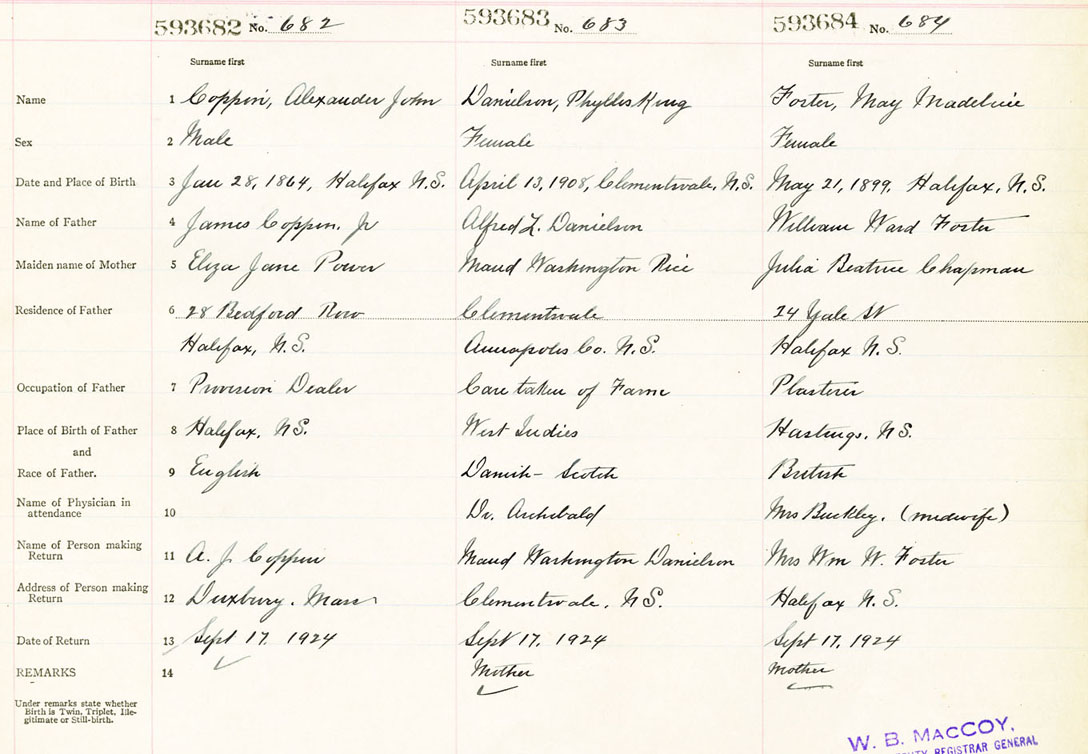 593682 No. 682 593683 No. 683 593684 No. 684
Surname first Surname first Surname first
Name 1 Coppin, Alexander John Danielson, Phyllis King Foster, May Madeline
Sex 2 Male Female Female
Date and Place of Birth 3 Jan 28, 1864, Halifax N.S. April 13, 1908, Clementsvale, N.S. May 21, 1899, Halifax, N.S.
Name of Father 4 James Coppin, Jr Alfred L. Danielson William Ward Foster
Maiden name of Mother 5 Eliza Jane Power Maud Washington Rice Julia Beatrice Chapman
Residence of Father 6 28 Bedford Row Clementsvale 24 Yale St
Halifax, N.S. Annapolis Co. N.S. Halifax N.S.
Occupation of Father 7 Provision Dealer Care taker of Farm Plasterer
Place of Birth of Father 8 Halifax, N.S. West Indies Hastings, N.S.
and
Race of Father. 9 English Danish - Scotch British
Name of Physician in
attendance 10 Dr. Archibald Mrs Buckley. (midwife)
Name of Person making
Return 11 A. J. Coppin Maud Washington Danielson Mrs Wm W. Foster
Address of Person making
Return 12 Duxbury, Mass Clementsvale, N.S. Halifax N.S.
Date of Return 13 Sept 17, 1924 Sept 17, 1924 Sept 17, 1924
REMARKS 14 Mother Mother
Under remarks state whether
Birth is Twin, Triplet, Ille-
gitimate or Still-birth.
W. B. MACCOY,
REGISTRAR GENERAL